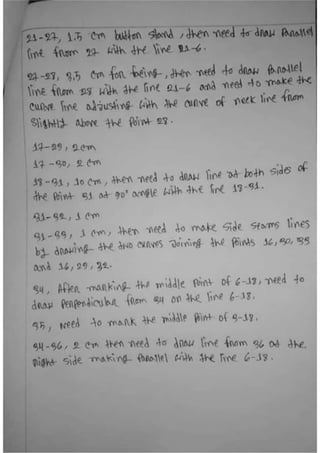 21-27, 1.5 cm button stand, then need to draw Parallel
line from 27 with the line 21-6.
27-28, 3.5 cm for being, then need to draw Parallel
line from 28 with the line 21-6 and need to make the
curve line adjusting with the curve of neck line from
slightly above the Point 28.
17-29, 2 cm
17-30, 2 cm
18-31, 10 cm, then need to draw line at both sides of
the Point 31 at 90° angle with the line 18-31.
31-32, 1 cm
31-33, 1 cm, then need to make side seams lines
by drawing the two curves Joining the Points 16, 30, 33
and 16, 29, 32.
34, After marking the middle Point of 6-18, need to
draw Perpendicular from 34 on the line 6-18.
35, need to mark the middle Point of 3-18.
34-36, 2 cm then need to draw line from 36 at the
right side making Parallel with the line 6-18.